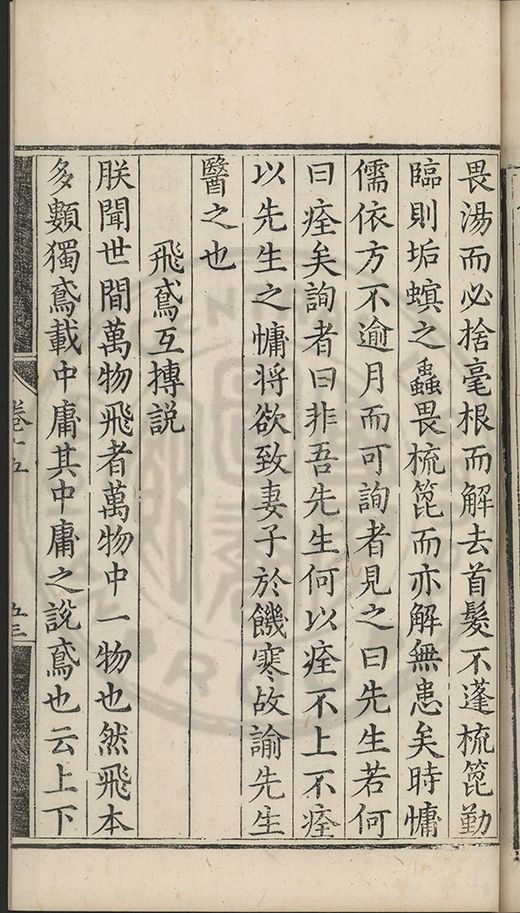 畏湯而必捨毫根而解去首髮不蓬梳篦勤
臨則垢螟之蟊畏梳篦而亦解無患矣時慵
儒依方不逾月而可詢者見之曰先生若何
曰痊矣詢者曰非吾先生何以痊不上不痊
以先生之慵將欲致妻子於饑寒故諭先生
醫之也
飛鳶互摶説
朕聞世間萬物飛者萬物中一物也然飛本
多顙獨鳶載中庸其中庸之說鳶也云上下
卷十五
五三